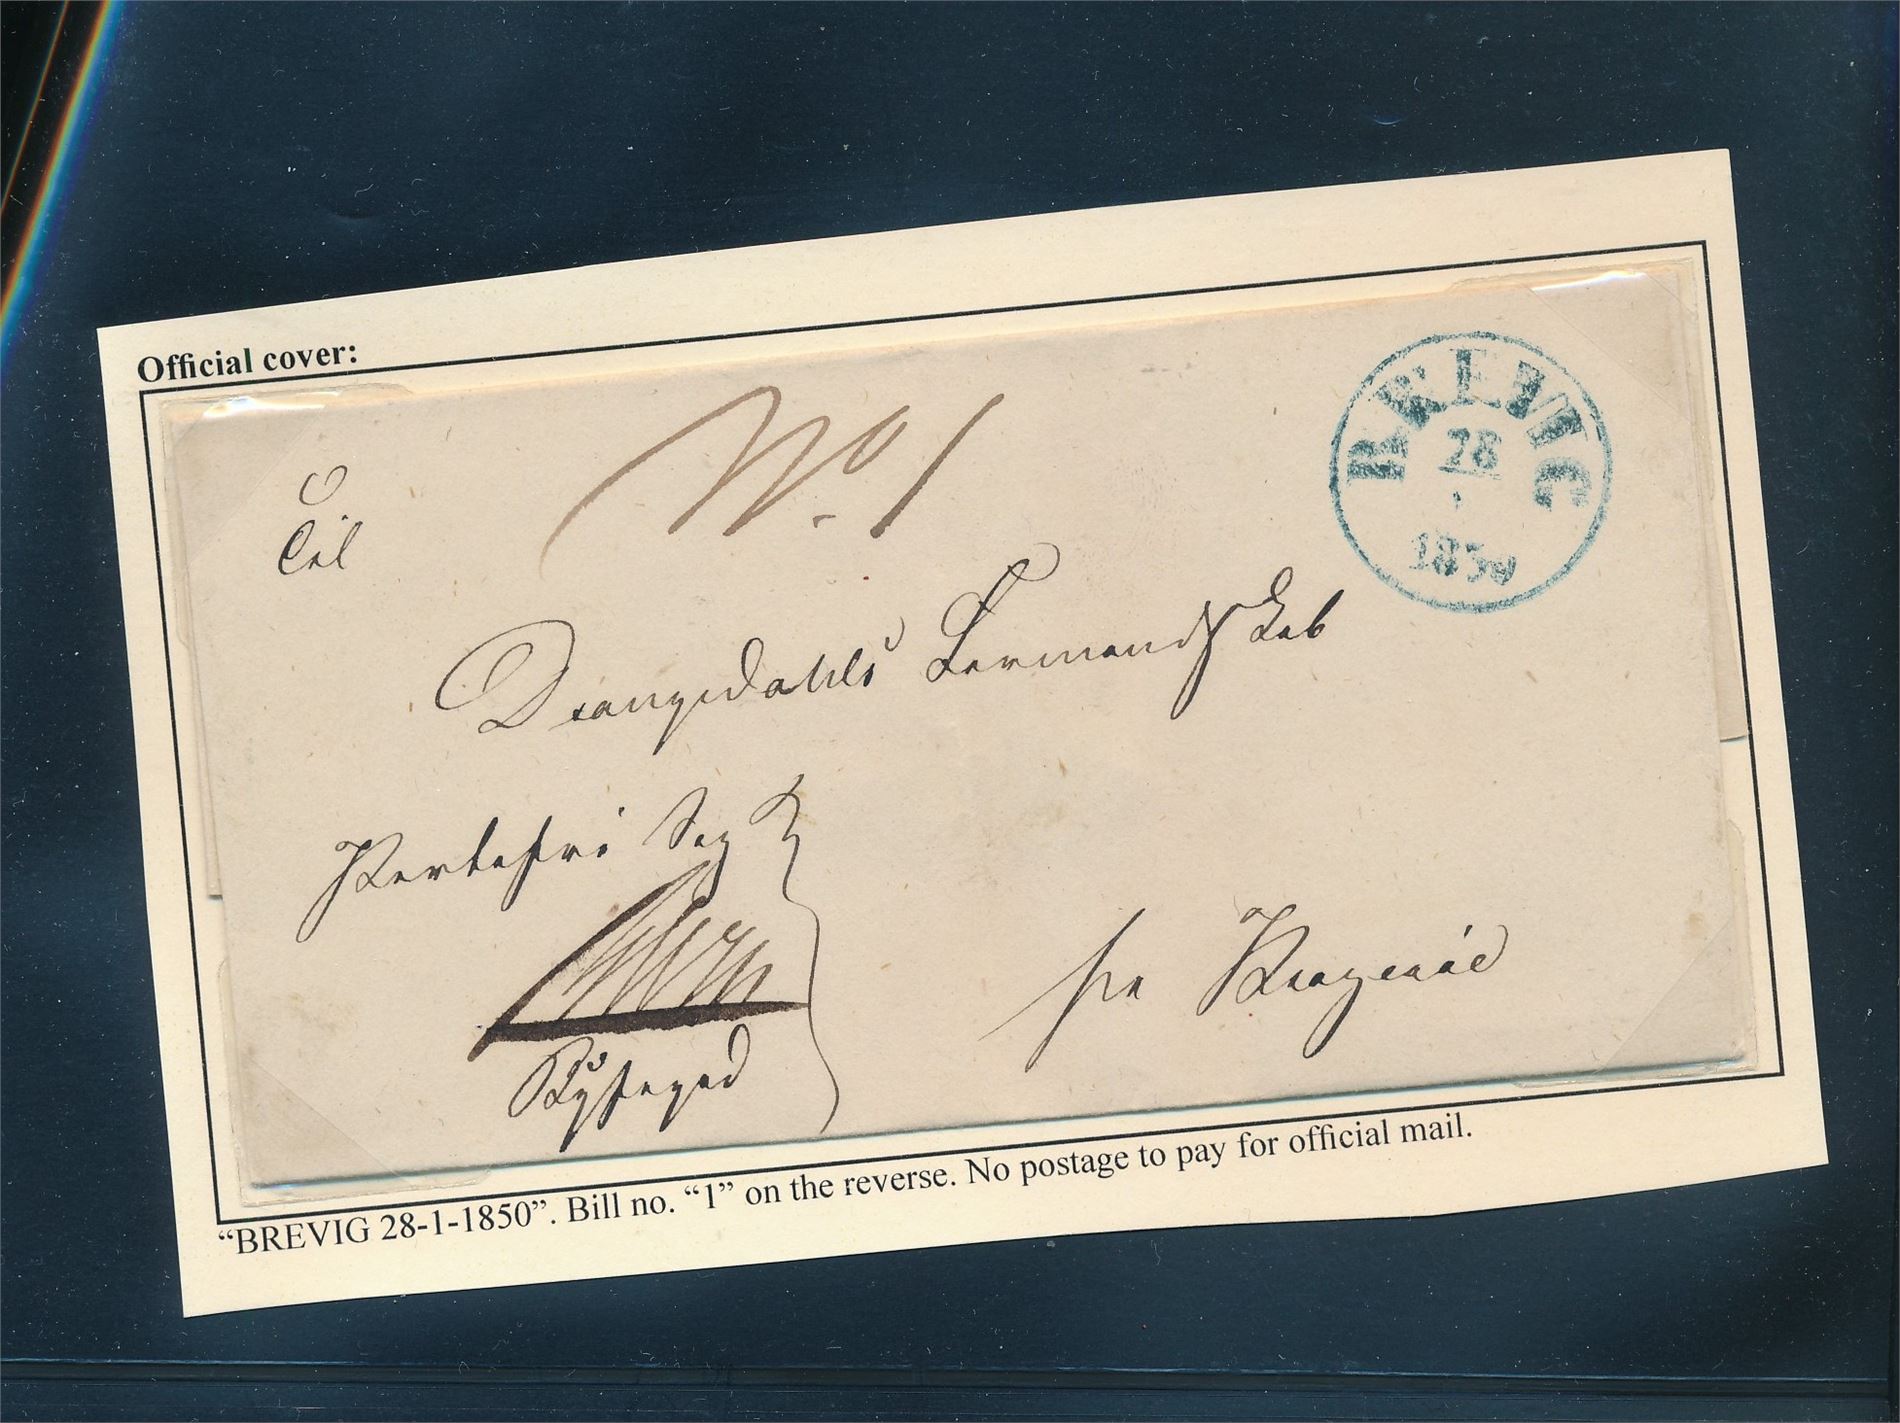 Official cover:
No. 1
BREVIG
28
1
1850
Til
Drangedahls Formandskab
Portofri Sag
pr Kragerøe
"BREVIG 28-1-1850". Bill no. "1" on the reverse. No postage to pay for official mail.